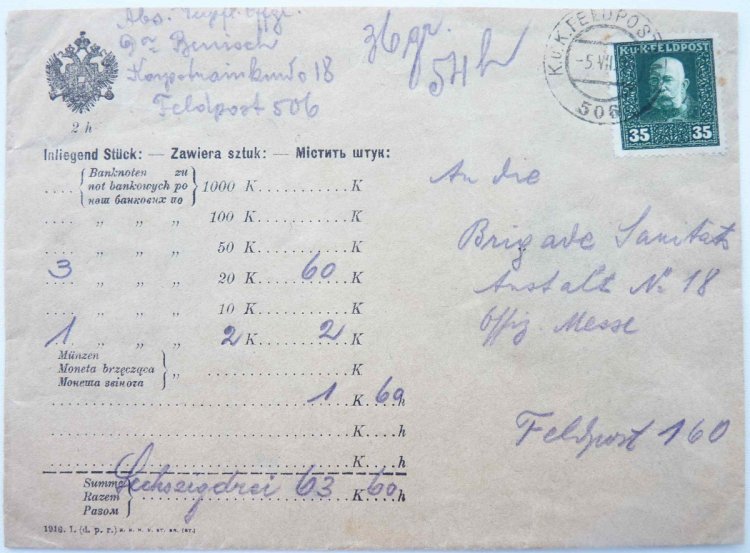 Abs.
Benisch
18
Feldpost 506
36 gr.
54 h
K.u.K. FELDPOST
-5.VII
506
K.u.K. FELDPOST
35 35
2 h
Inliegend Stück: — Zawiera sztuk: — Мiстить штук:
.... Banknoten zu
not bankowych po
нот банкових по
1000 K.........K
.... „ „ „ 100 K.........K
.... „ „ „ 50 K.........K
3 „ „ „ 20 K 60 K
.... „ „ „ 10 K.........K
1 „ „ „ 2 K 2 K
Münzen
Moneta brzęcząca „ K
Монета звiнота
1 K 60 h
K....h
K....h
Summe
Razem
Разом
Sechszigdrei 63 K 60 h
1916. I. (d. p. r.)
An die
Brigade Sanitäts
Anstalt Nr 18
Offiz. Messe
Feldpost 160